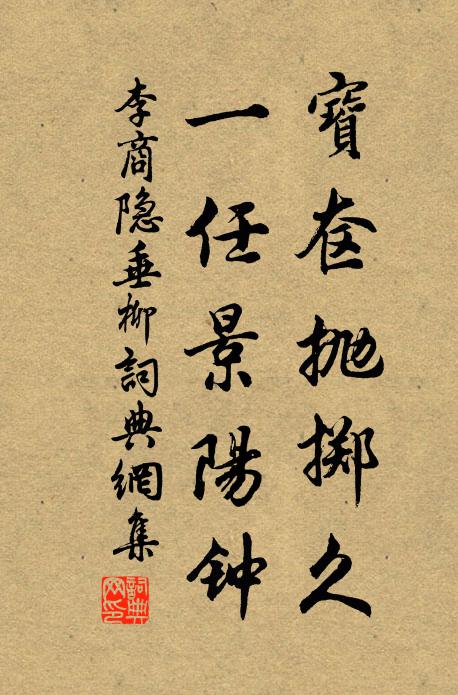 寶奁抛掷久
一任景陽钟
李商隐垂柳詞典網集
詞典
网印